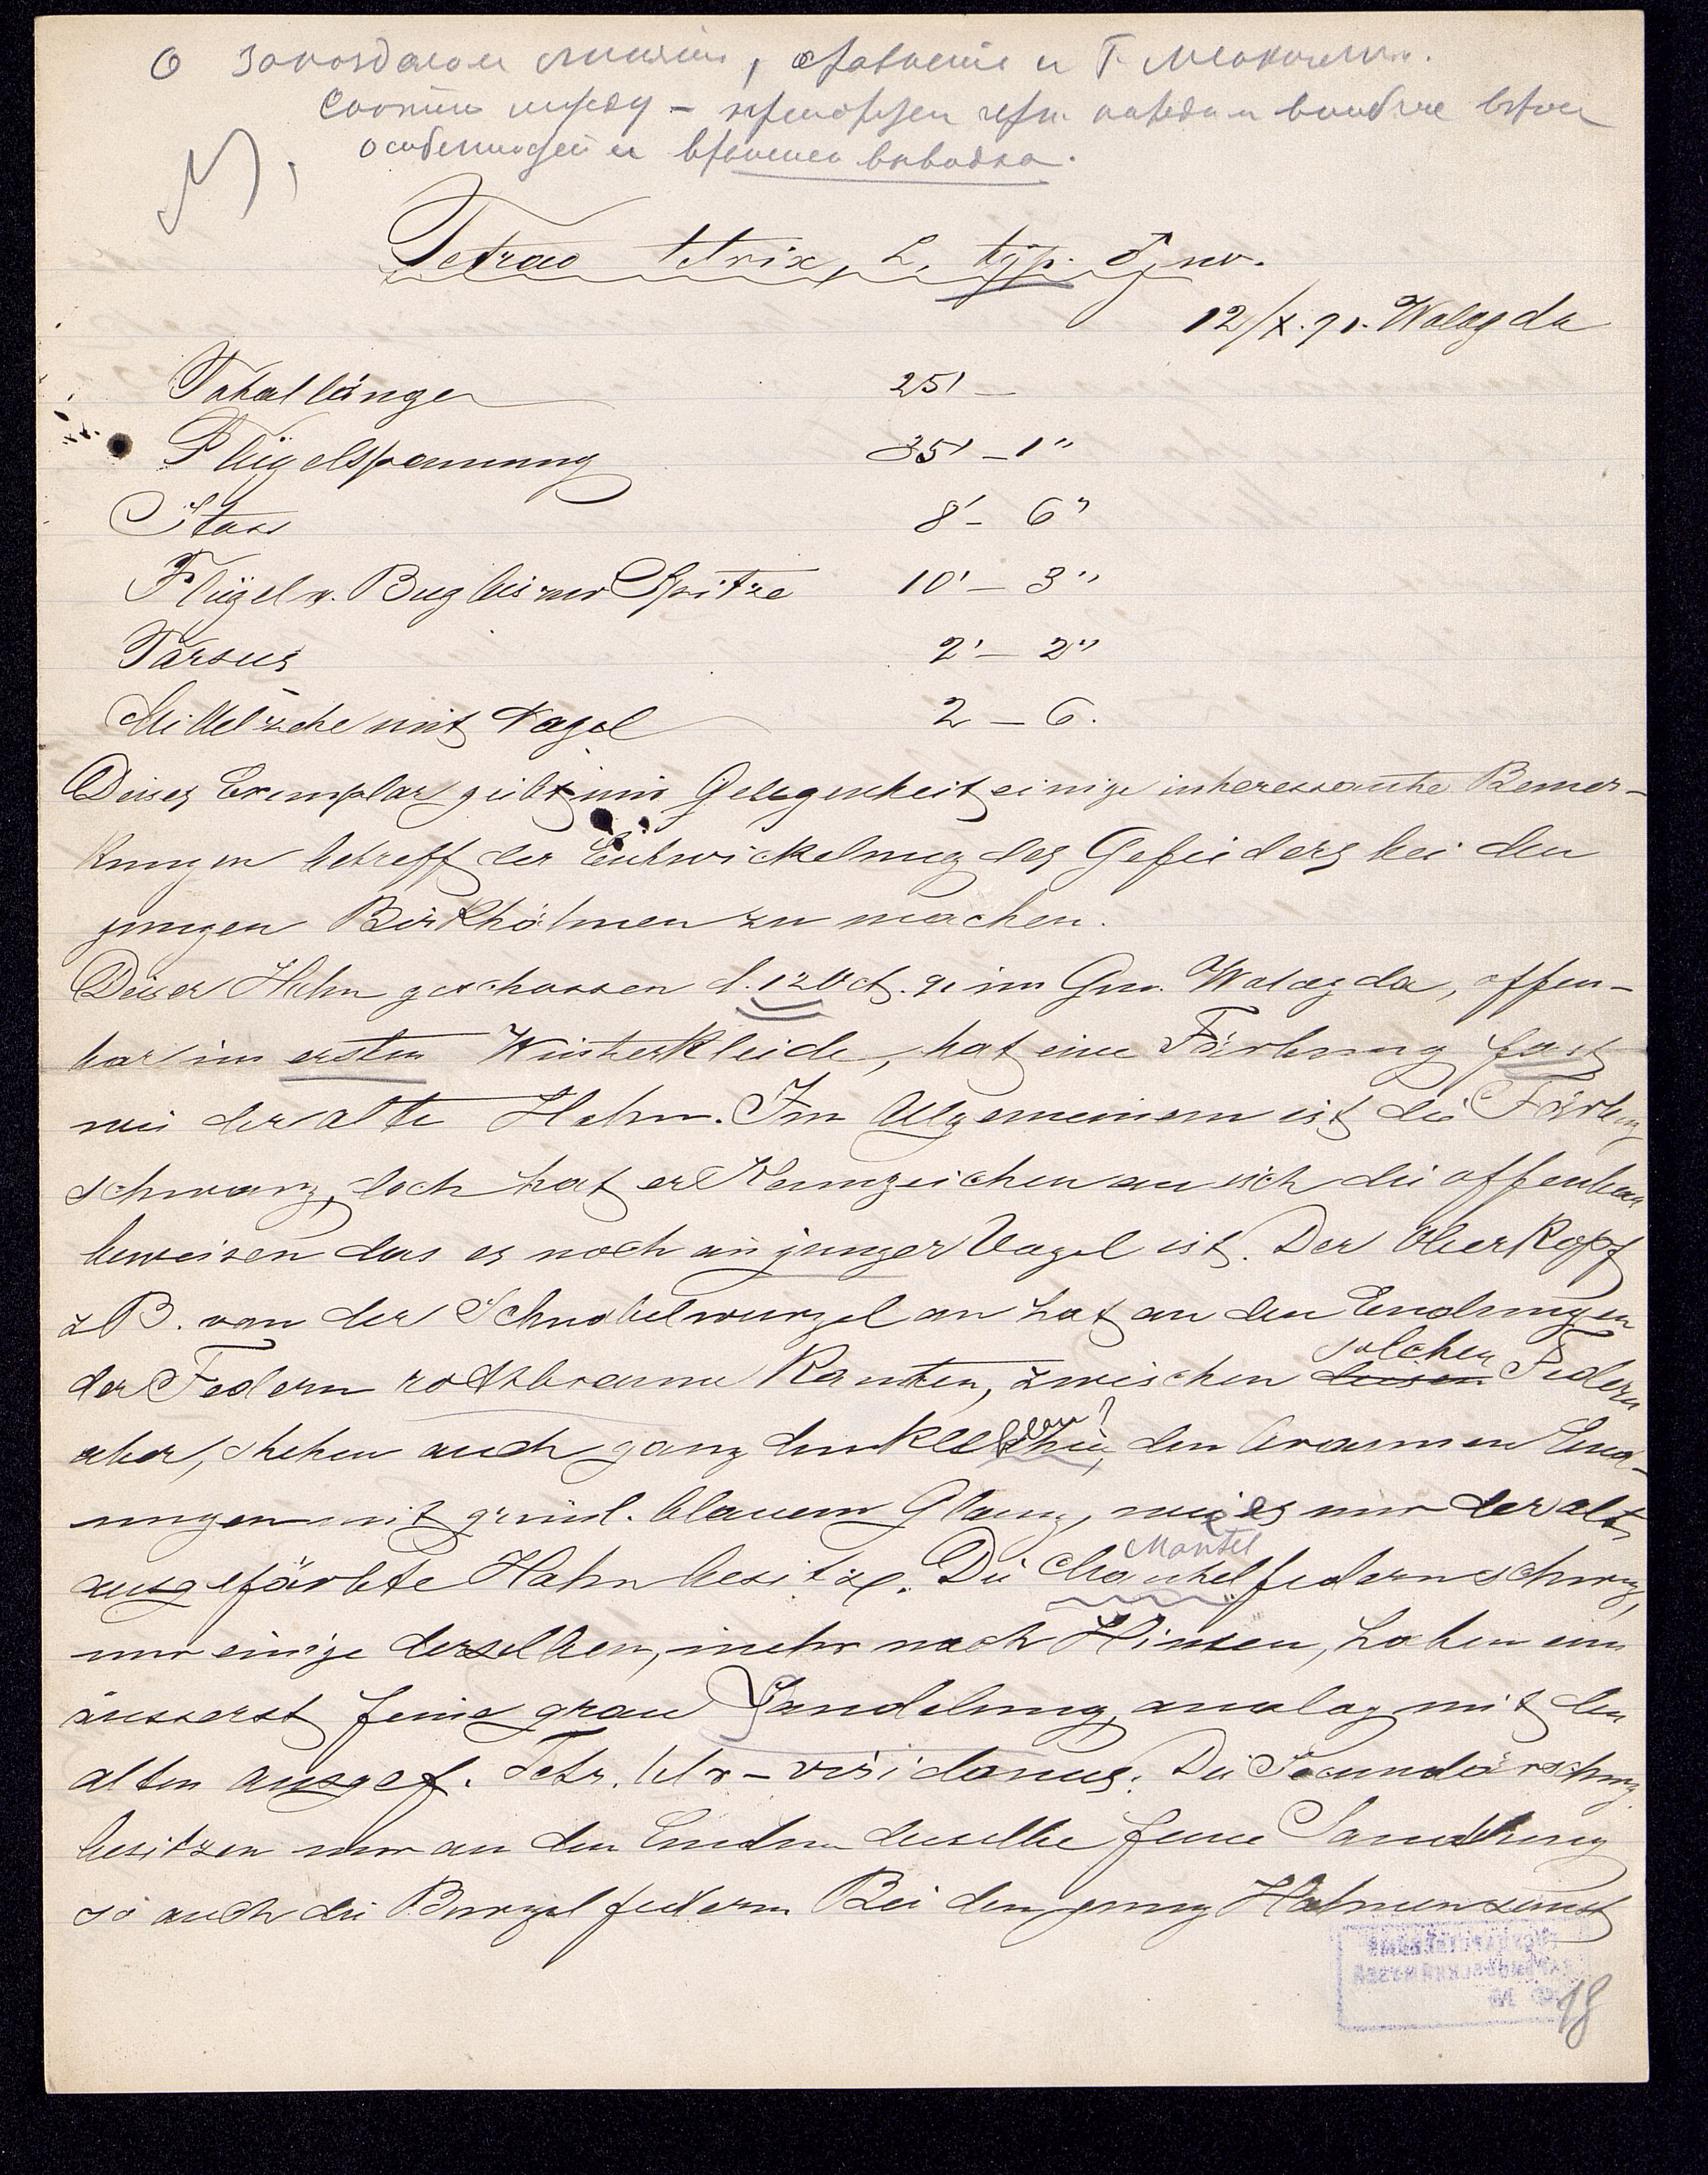 О запоздалом
особенностей и времени выводка.
Tetrao tetrix, L. typ. ♂ juv.
12/X. 91. Wologda
Totallänge 25' —
Flügelspannung 35' — 1"
Stoss 8' — 6"
Flügel v. Bug bis zur Spitze 10' — 3"
Tarsus 2' — 2"
Mittelzehe mit Nagel 2 — 6.
Dieses Exemplar giebt mir Gelegenheit einige interessante Bemer-
kungen betreff der Entwickelung des Gefieders bei den
jungen Birkhähnen zu machen.
Dieser Hahn geschossen d. 12 Oct. 91 im Guv. Wologda, offen-
bar im ersten Winterkleide, hat eine Färbung fast
wie der alte Hahn. Im Allgemeinem ist die Färbung
schwarz, doch hat er Kennzeichen an sich die offenbar
beweisen das es noch ein junger Vogel ist. Der Oberkopf
z B. von der Schnabelwurzel an hat an den Endungen
der Federn rothbraune Kanten, zwischen solchen Federn
aber, stehen auch ganz dunkle den braunen End-
ungen mit grünl. blauem Glanz, wie es nur der alte
ausgefärbte Hahn besitzt. Die Mantel Mantelfedern schwarz,
nur einige derselben, mehr nach Hinten, haben eine
äusserst feine graue Sandelung, analog mit den
alten ausgef. Tetr. tetr-viridanus. Die Secundärschwg.
besitzen nur an den Enden dieselbe feine Sandelung
so auch die Bürzelfedern. Bei den jung Hähnen sonst
18